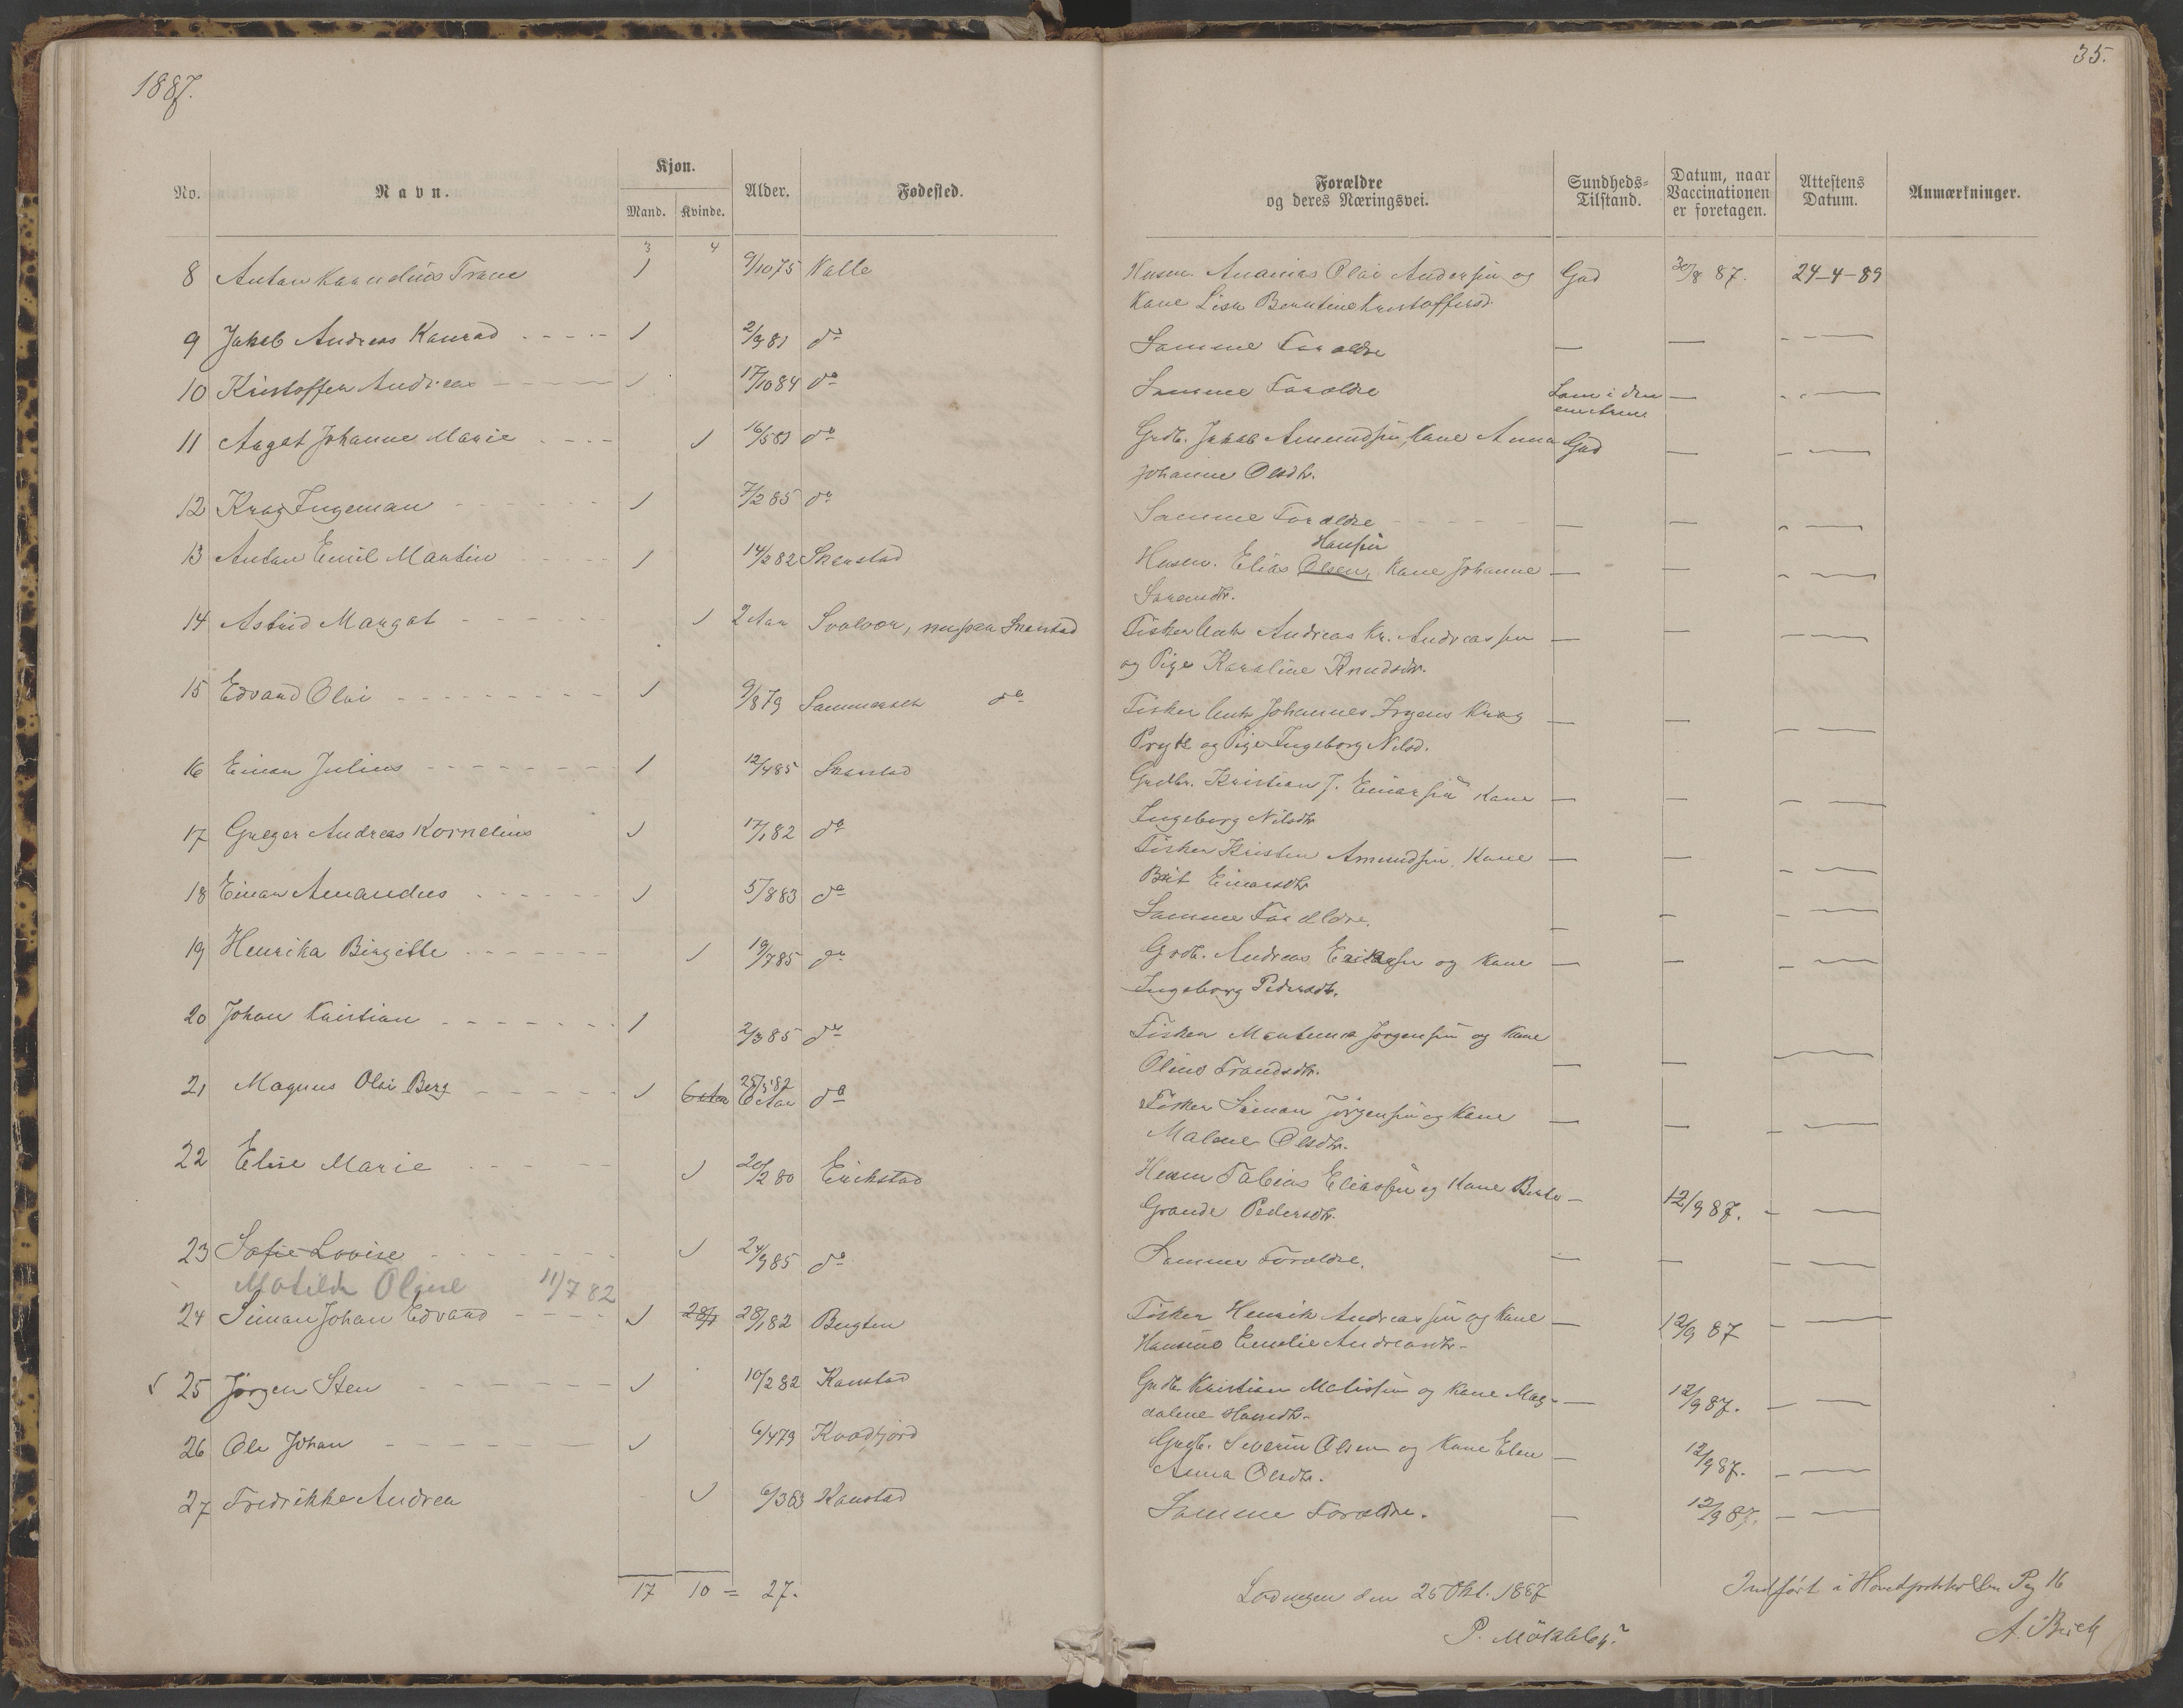 1887.
35.
No.
Navn.
Kjøn.
Mand.
Kvinde.
Alder.
Fødested.
Forældre
og deres Næringsvei.
Sundheds-
Tilstand.
Datum, naar
Vaccinationen
er foretagen.
Attestens
Datum.
Anmærkninger.
3 4
8 Anton Kornelius Trane 1 9/10 75 Valle Husm. Ananias Olai Andersen og God 30/8 87. 24-4-89
Kone Lisa Berntine Kristoffersd.
9 Jakob Andreas Konrad - - - - - 1 2/9 81 do Samme Forældre — — - - —
10 Kristoffer Andreas - - - - 1 17/10 84 do Samme Forældre Lam i den — - - —
ene Arm
11 Aagot Johanne Marie - - - - 1 16/5 81 do Grdb. Jakob Amundsen, Kone Anna God — - —
Johanne Olsdtr.
12 Krog Ingeman - - - - - 1 7/2 85 do Samme Forældre - - - - — — - —
13 Anton Emil Martin - - - - 1 14/2 82 Skarstad Hansen
Husm. Elias Olsen, Kone Johanne — — - —
Sørensdtr.
14 Astrid Margot - - - - - 1 2 Aar Svolvær, nu paa Skarstad Fisker Enk. Andreas Kr. Andreassen — — - —
og Pige Karoline Knudsdtr.
15 Edvard Olai - - - - - - - 1 9/8 79 Sammesteds do Fisker Enk. Johannes Krog — — - —
og Pige Ingeborg Nilsd.
16 Einar Julius - - - - - - 1 12/4 85 Skarstad Grdbr. Kristian J. Einarsen Kone — — - —
Ingeborg Nilsdtr
17 Greger Andreas Kornelius 1 17/1 82 do Fisker Kristen Amundsen, Kone — — - —
Brit Einarsdtr
18 Einar Amandus - - - - - 1 5/8 83 do Samme Forældre. — — - —
19 Henrika Birgitte - - - - - 1 19/7 85 do Grdb. Andreas Eriksen og Kone — — - —
Ingeborg Pedersdtr.
20 Johan Kristian - - - - - - 1 2/3 85 do Fisker Martinus Jørgensen og Kone
Oline Trondsdtr. — — —
21 Magnus Olai Berg - - - - - 1 6 Aar 25/5 82
6 Aar do Fisker Simon Jørgensen og Kone — — - —
Malene Olsdtr.
22 Elise Marie - - - - 1 20/2 80 Erikstad Husm Tobias Eliassen og Kone Berte — 12/9 87. - —
Grande Pedersdtr.
23 Sofie Lovise - - - - - - 1 24/9 85 do Samme Forældre. — — - —
Matilde Oline 11/7 82
24 Simon Johan Edvard - - - - 1 28/1 28/1 82 Bugten Fisker Henrik Andreassen og Kone — 12/9 87 - —
Hansine Emelie Andreasdtr.
25 Jørgen Sten - - - - - - 1 10/2 82 Kanstad Grdb. Kristian Matissen og Kone Mag- — 12/9 87. - —
dalene Hansdtr.
26 Ole Johan - - - - - - 1 6/4 79 Kvadfjord Grdb. Severin Olsen og Kone Elen — 12/9 87. - —
Anna Olsdtr.
27 Fredrikke Andrea 1 6/3 63 Kanstad Samme Forældre. — 12/9 87. - —
17 10 = 27.
Lødingen den 25 Okt. 1887
Indført i Hovedprotokollen Pag 16